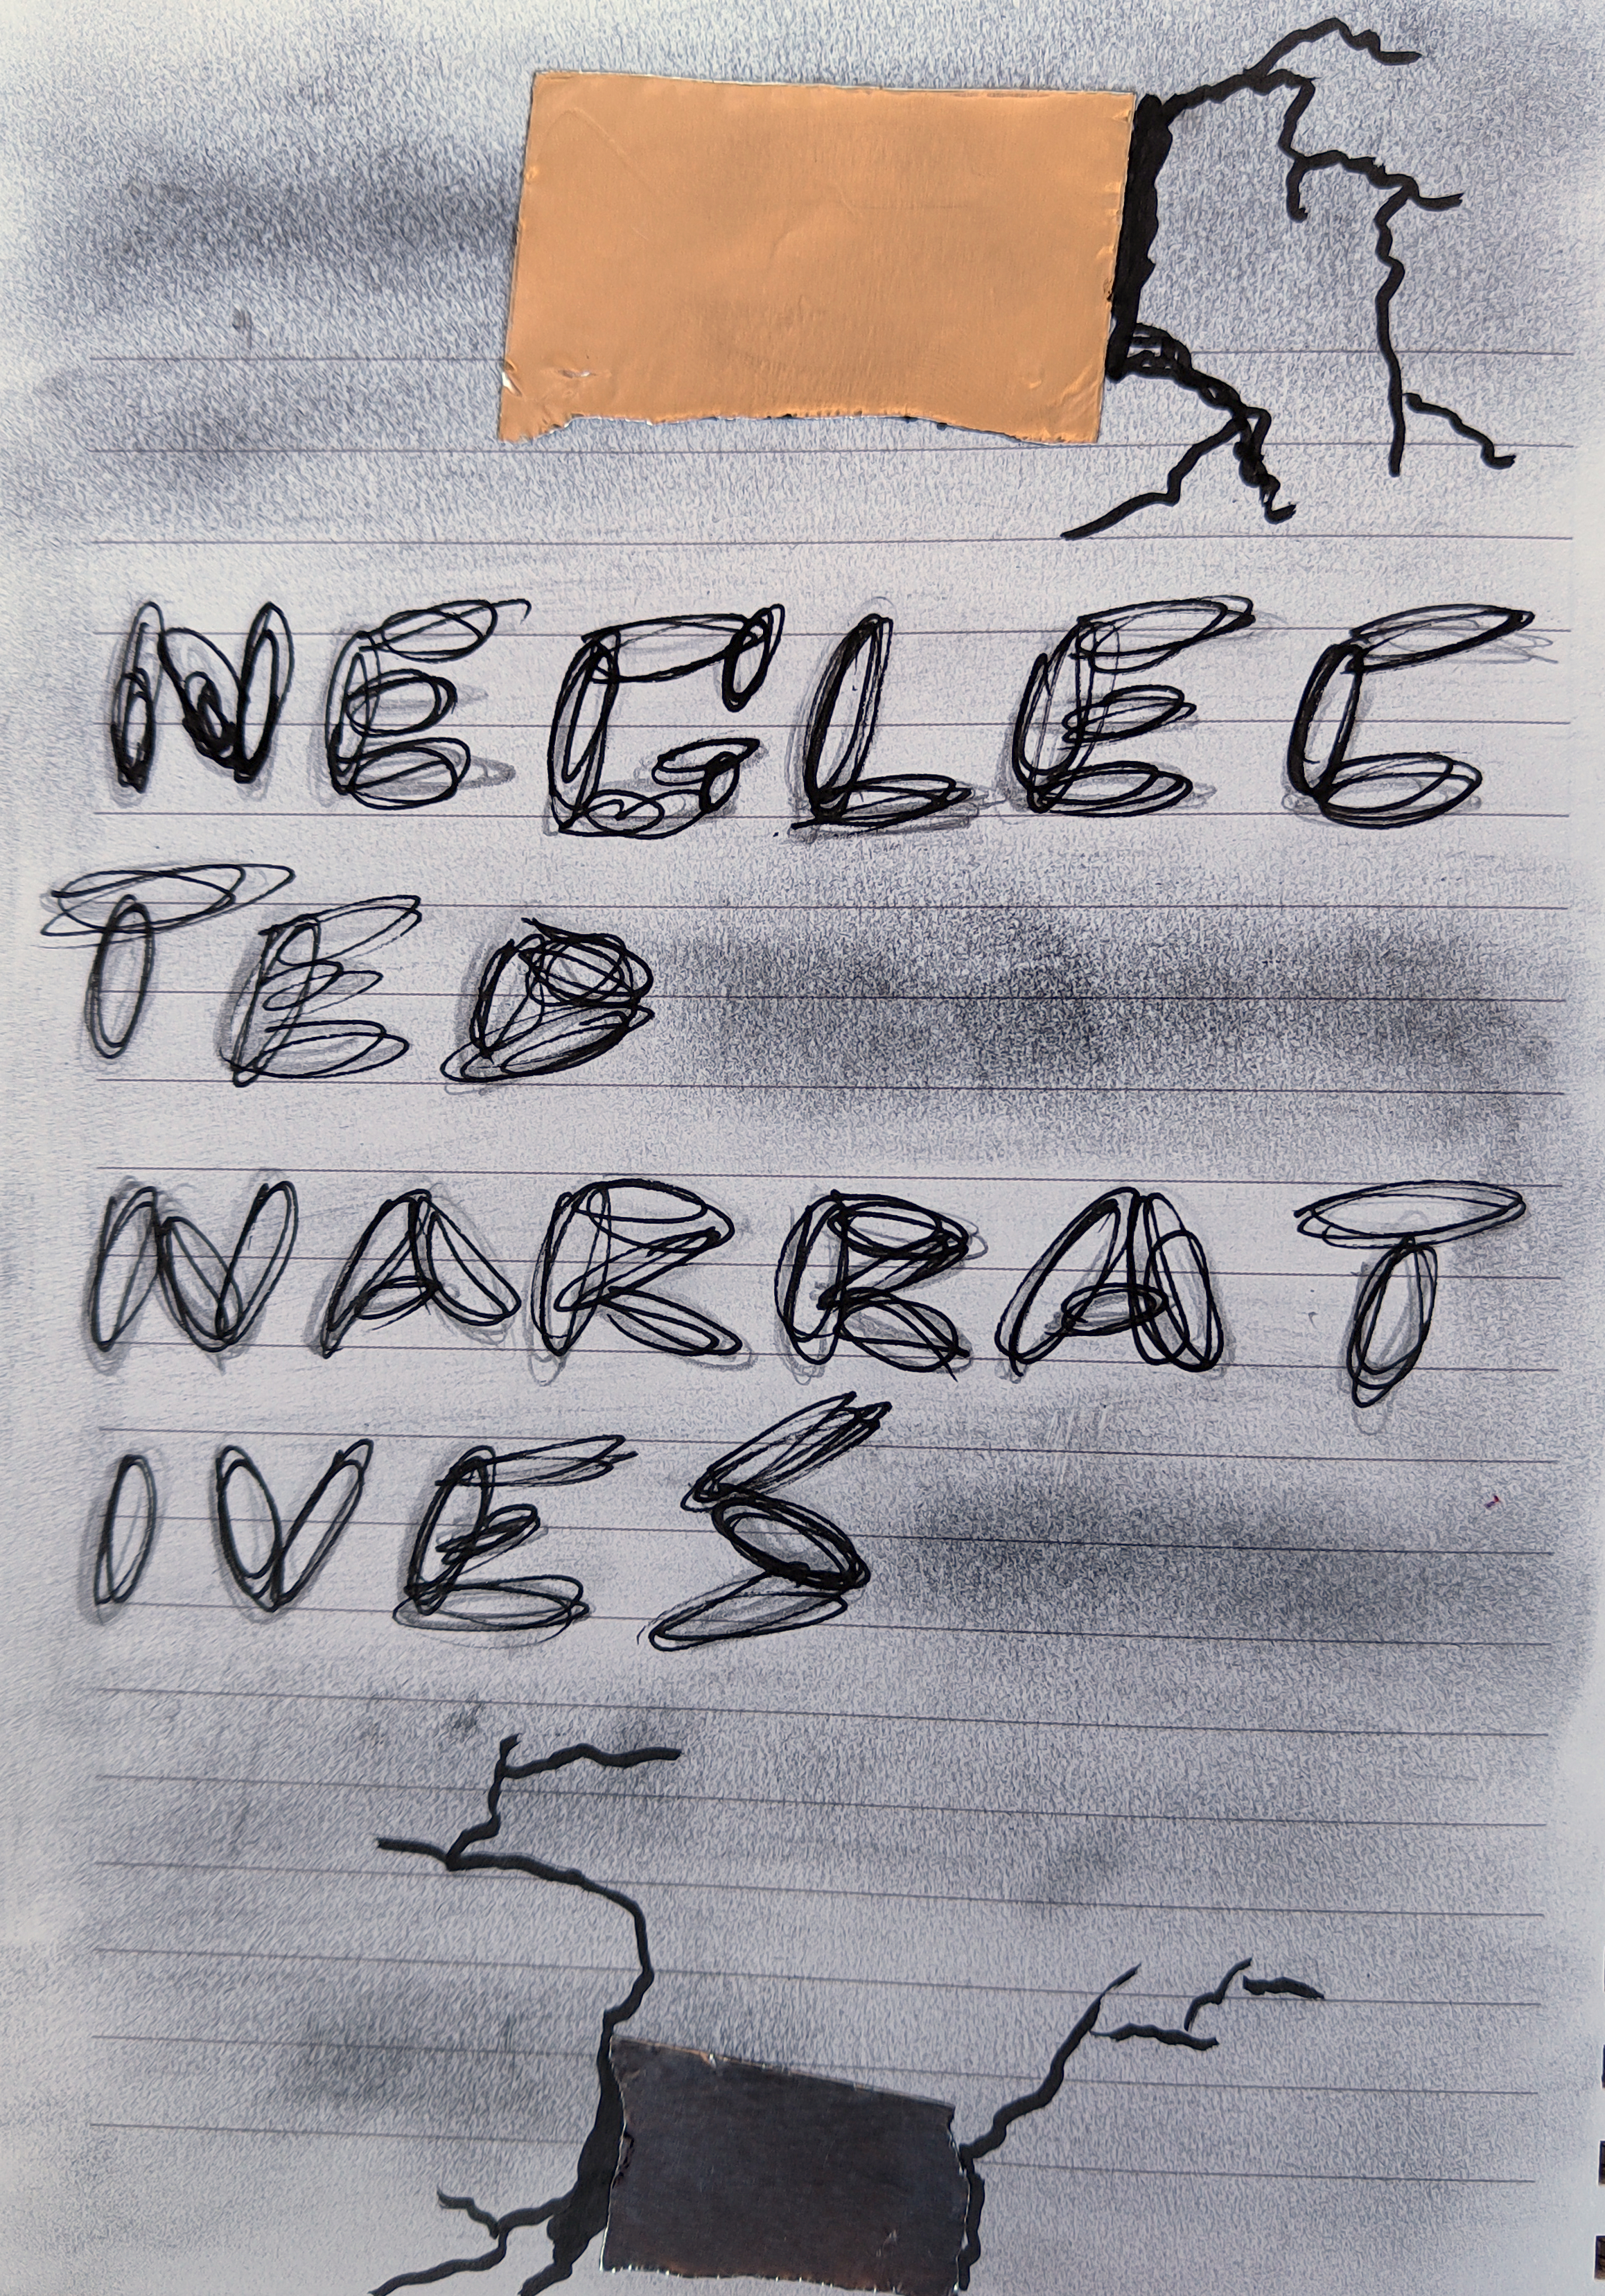 NEGLEC
TED
NARRAT
IVES